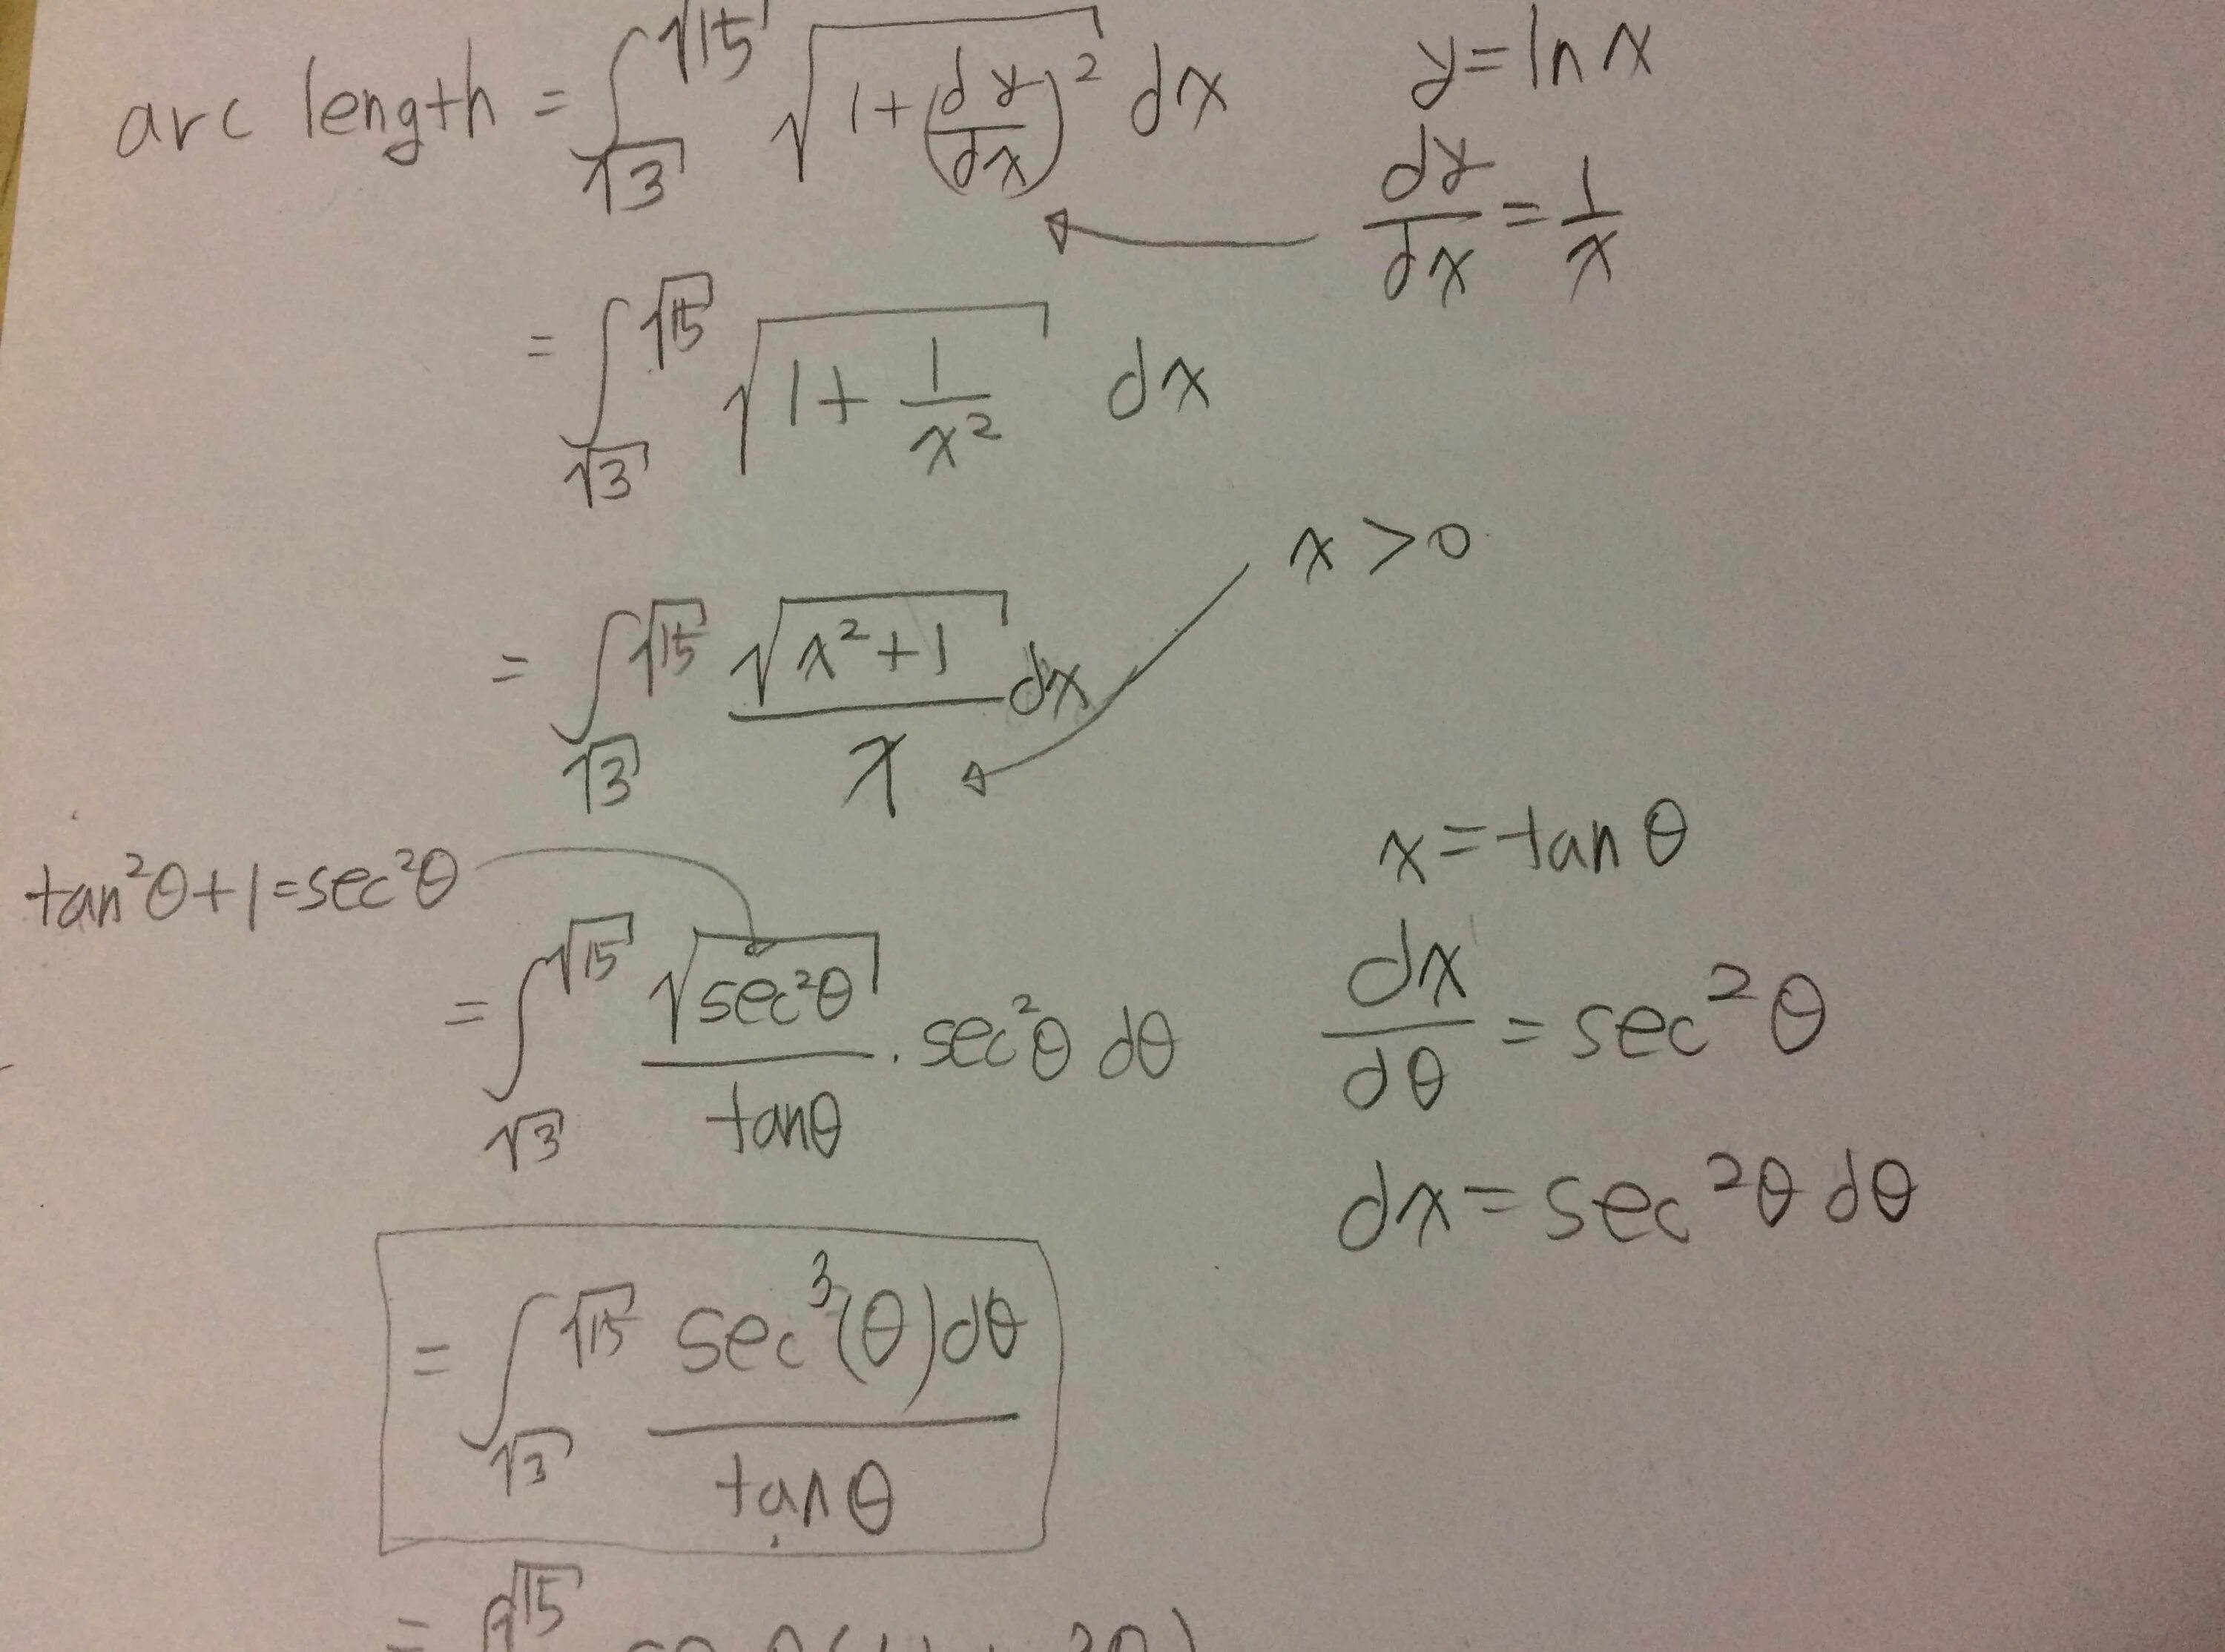 arc length = ∫_√3^√15 √(1+(dy/dx)²) dx
y = ln x
dy/dx = 1/x
= ∫_√3^√15 √(1+1/x²) dx
x > 0
= ∫_√3^√15 √(x²+1)/x dx
x = tan θ
tan²θ+1=sec²θ
= ∫_√3^√15 √(sec²θ)/tanθ · sec²θ dθ
dx/dθ = sec²θ
dx = sec²θ dθ
= ∫_√3^√15 sec³(θ)dθ/tan θ
= ∫^√15